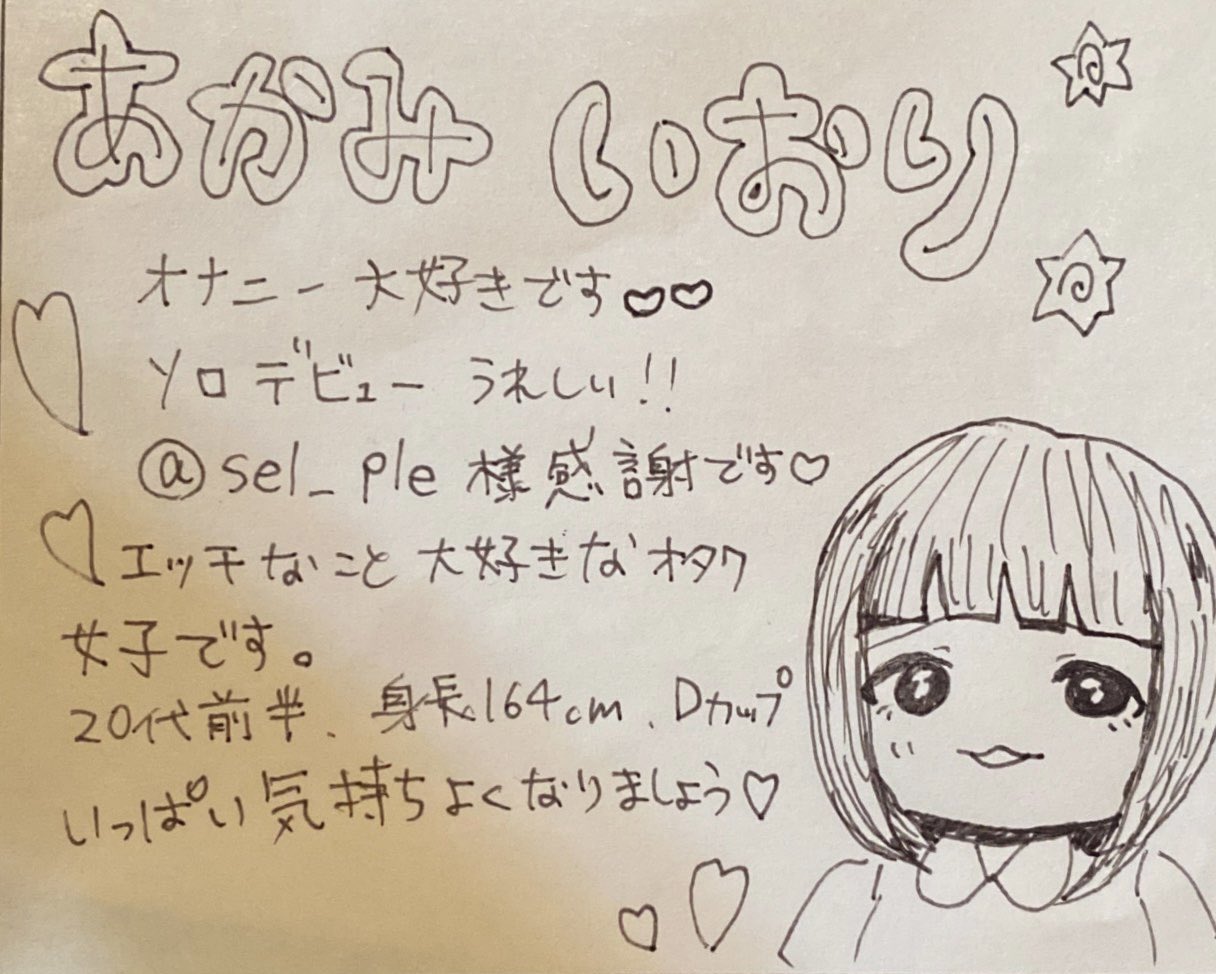 あかみ いおり
オナニー大好きです♡♡
ソロデビュー うれしい!!
@sel_ple 様感謝です♡
エッチなこと大好きなオタク
女子です。
20代前半、身長164cm、Dカップ
いっぱい気持ちよくなりましょう♡